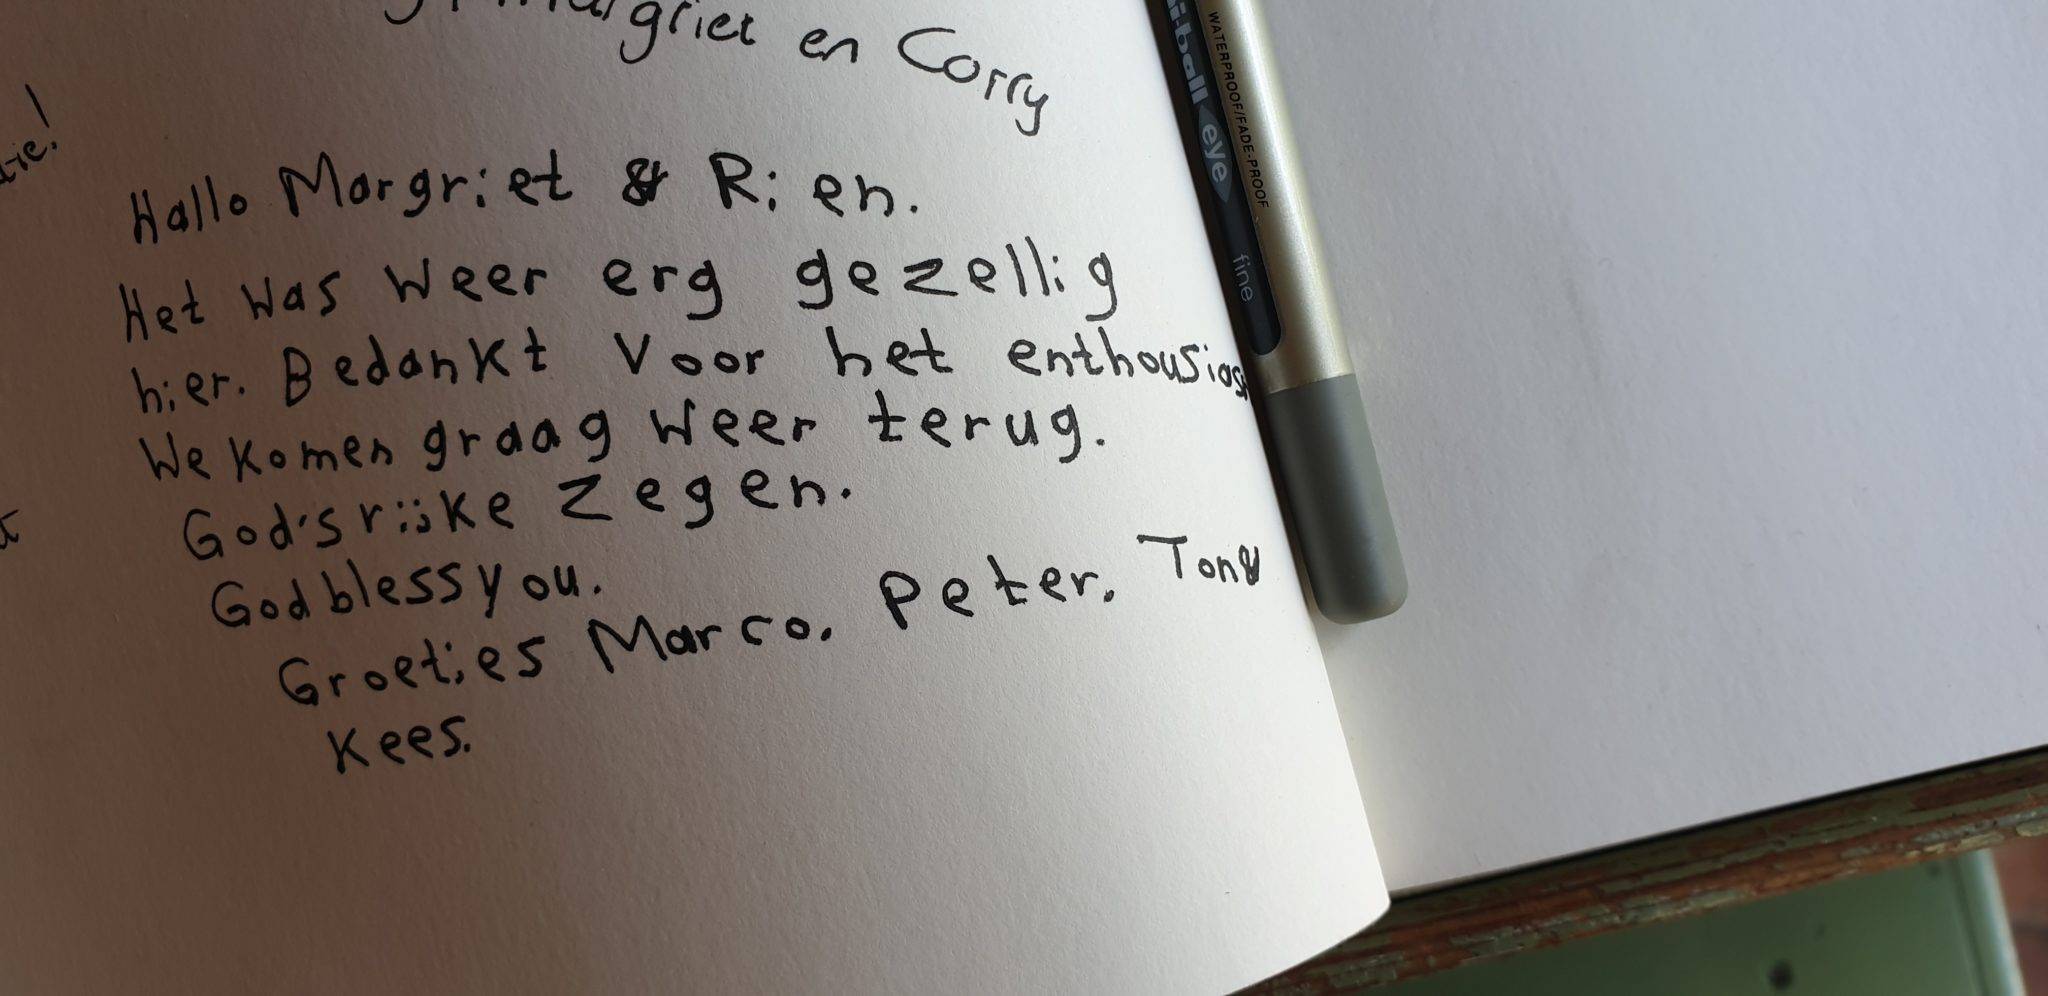 griet en Corry
Hallo Margriet & Rien.
Het was weer erg gezellig
hier. Bedankt voor het enthousias
We komen graag weer terug.
God's rijke zegen.
God bless you.
Groetjes Marco. Peter. Tony
Kees.
i-ball eye fine
WATERPROOF/FADE-PROOF